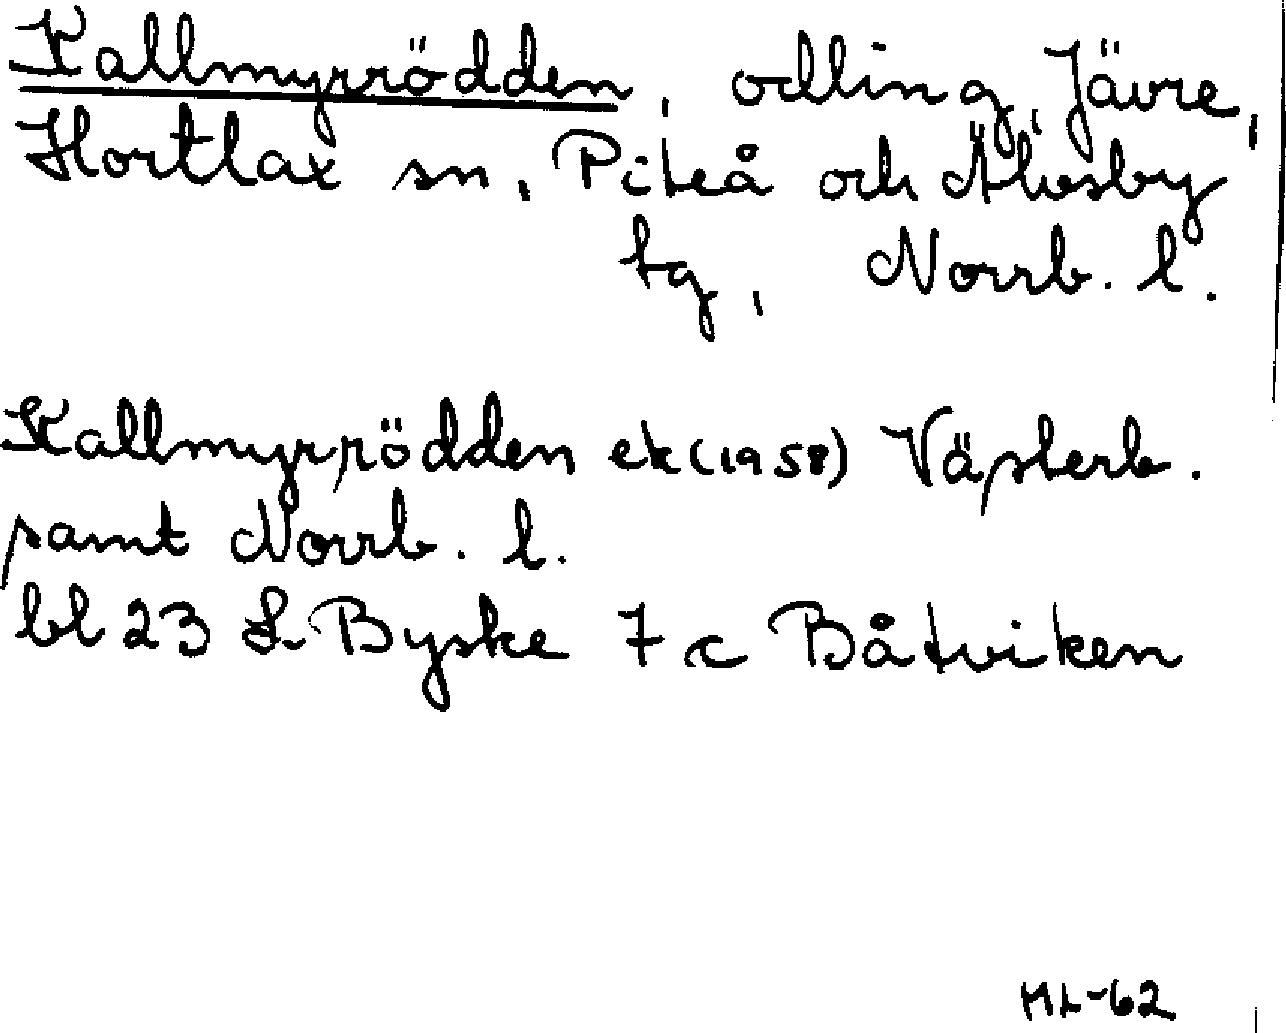 Kallmyrrödden, odling, Jävre,
Hortlax sn, Piteå och Älvsby
tg, Norrb. l.
Kallmyrrödden ek (1958) Västerb.
samt Norrb. l.
bl 23 L Byske 7 c Båtviken
ML-62